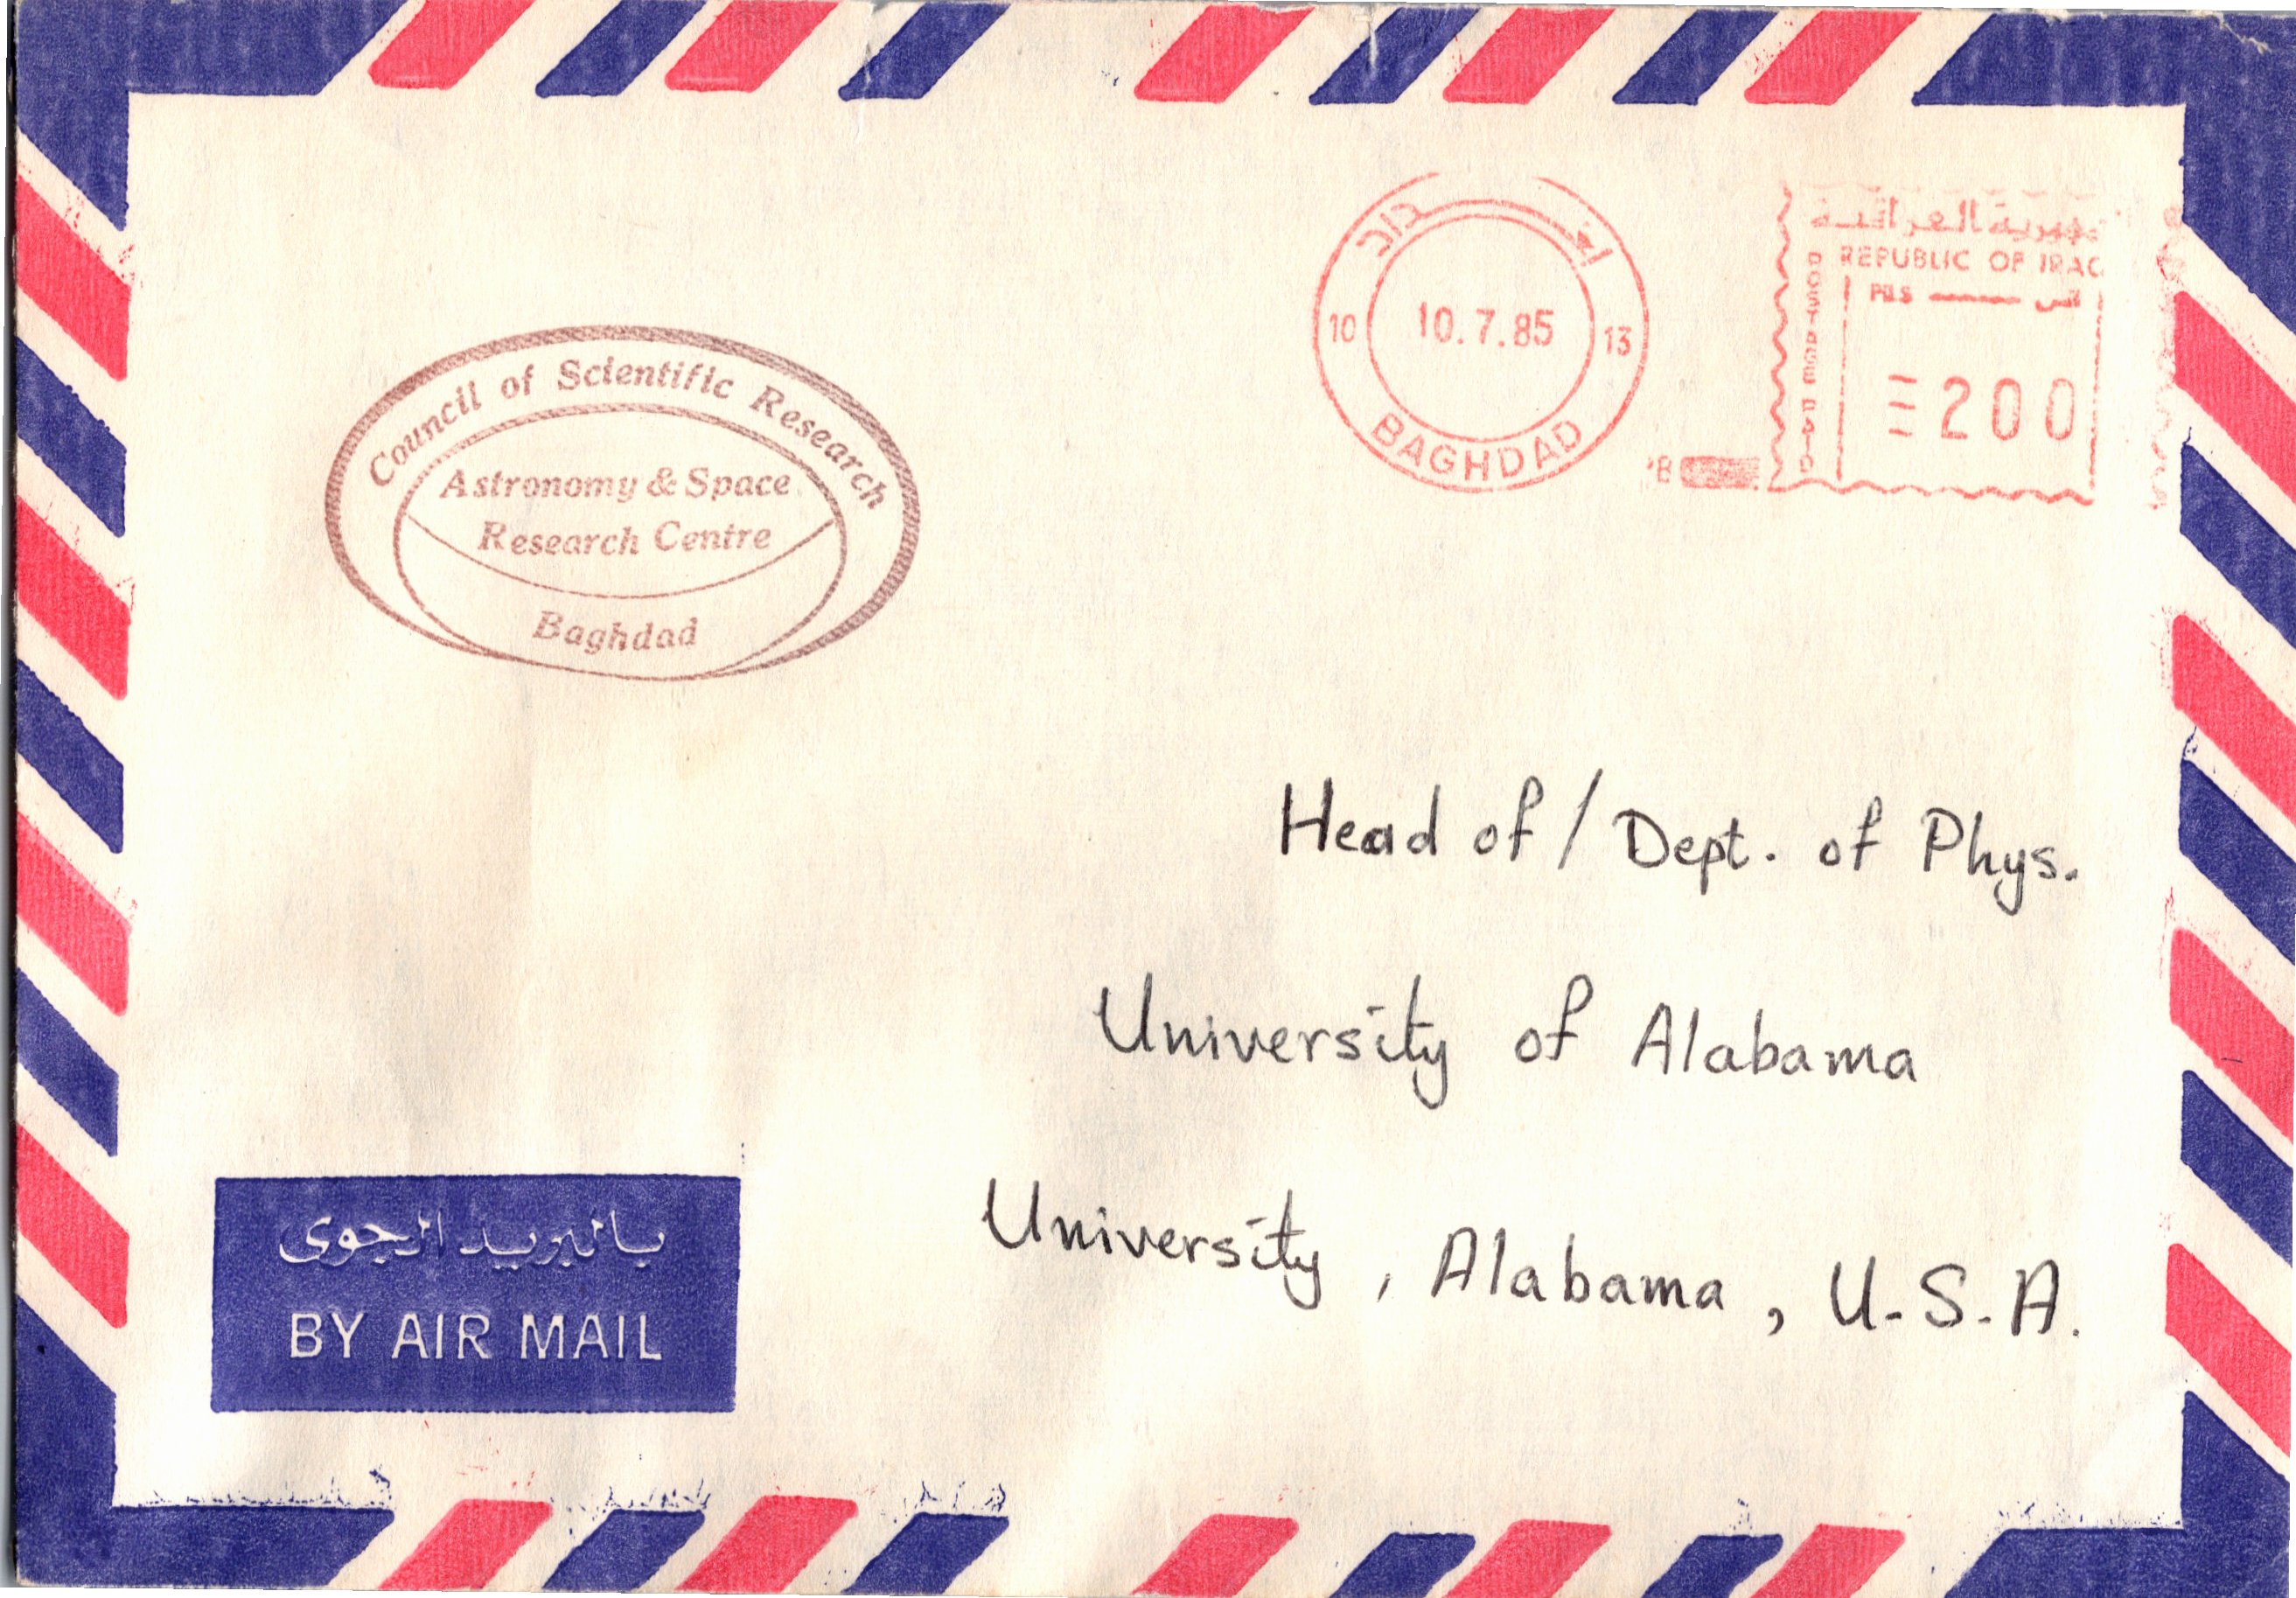 Council of Scientific Research
Astronomy & Space
Research Centre
Baghdad
10
10.7.85
13
BAGHDAD
REPUBLIC OF IRAQ
POSTAGE PAID
FILS فلس
200
Head of / Dept. of Phys.
University of Alabama
University, Alabama, U.S.A.
بالبريد الجوى
BY AIR MAIL